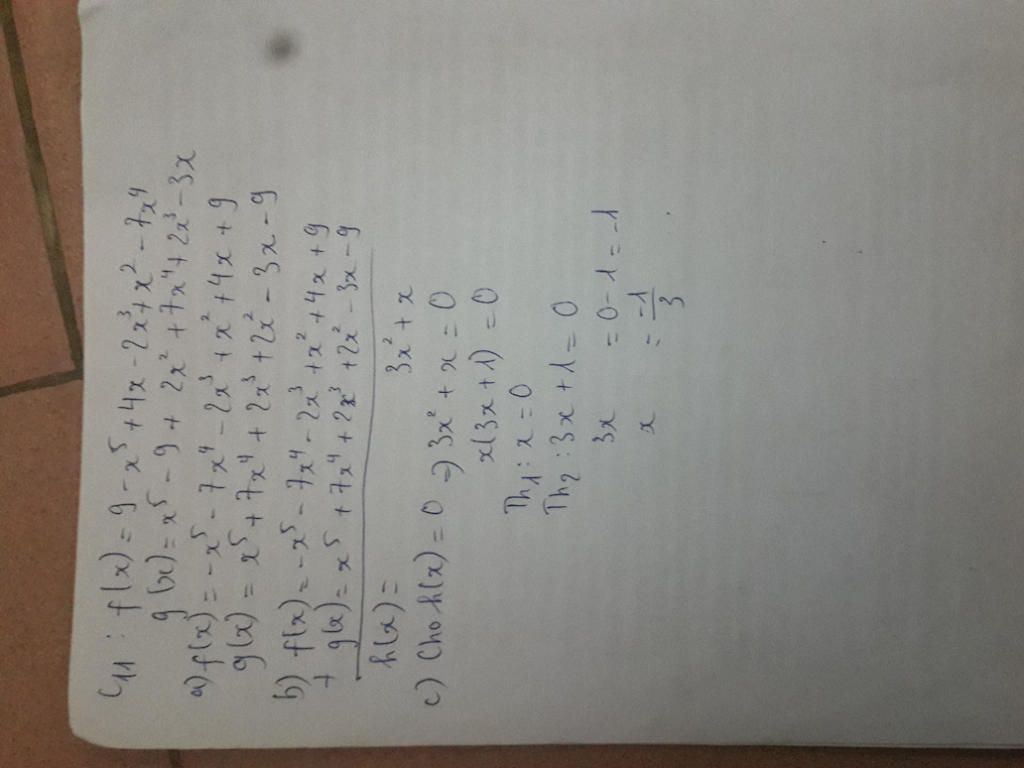 C11 : f(x) = 9 - x⁵ + 4x - 2x³ + x² - 7x⁴
g(x) = x⁵ - 9 + 2x² + 7x⁴ + 2x³ - 3x
a) f(x) = -x⁵ - 7x⁴ - 2x³ + x² + 4x + 9
g(x) = x⁵ + 7x⁴ + 2x³ + 2x² - 3x - 9
b) f(x) = -x⁵ - 7x⁴ - 2x³ + x² + 4x + 9
+ g(x) = x⁵ + 7x⁴ + 2x³ + 2x² - 3x - 9
h(x) = 3x² + x
c) Cho h(x) = 0 => 3x² + x = 0
x(3x + 1) = 0
Th1 : x = 0
Th2 : 3x + 1 = 0
3x = 0 - 1 = -1
x = -1/3